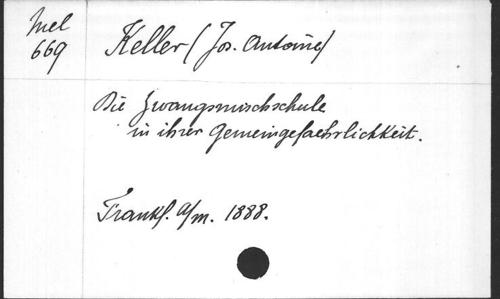 Mel
669
Keller (Jos. Antoine)
Die Zwangsmischschule
in ihrer Gemeingefaehrlichkeit.
Frankf. a/m. 1888.